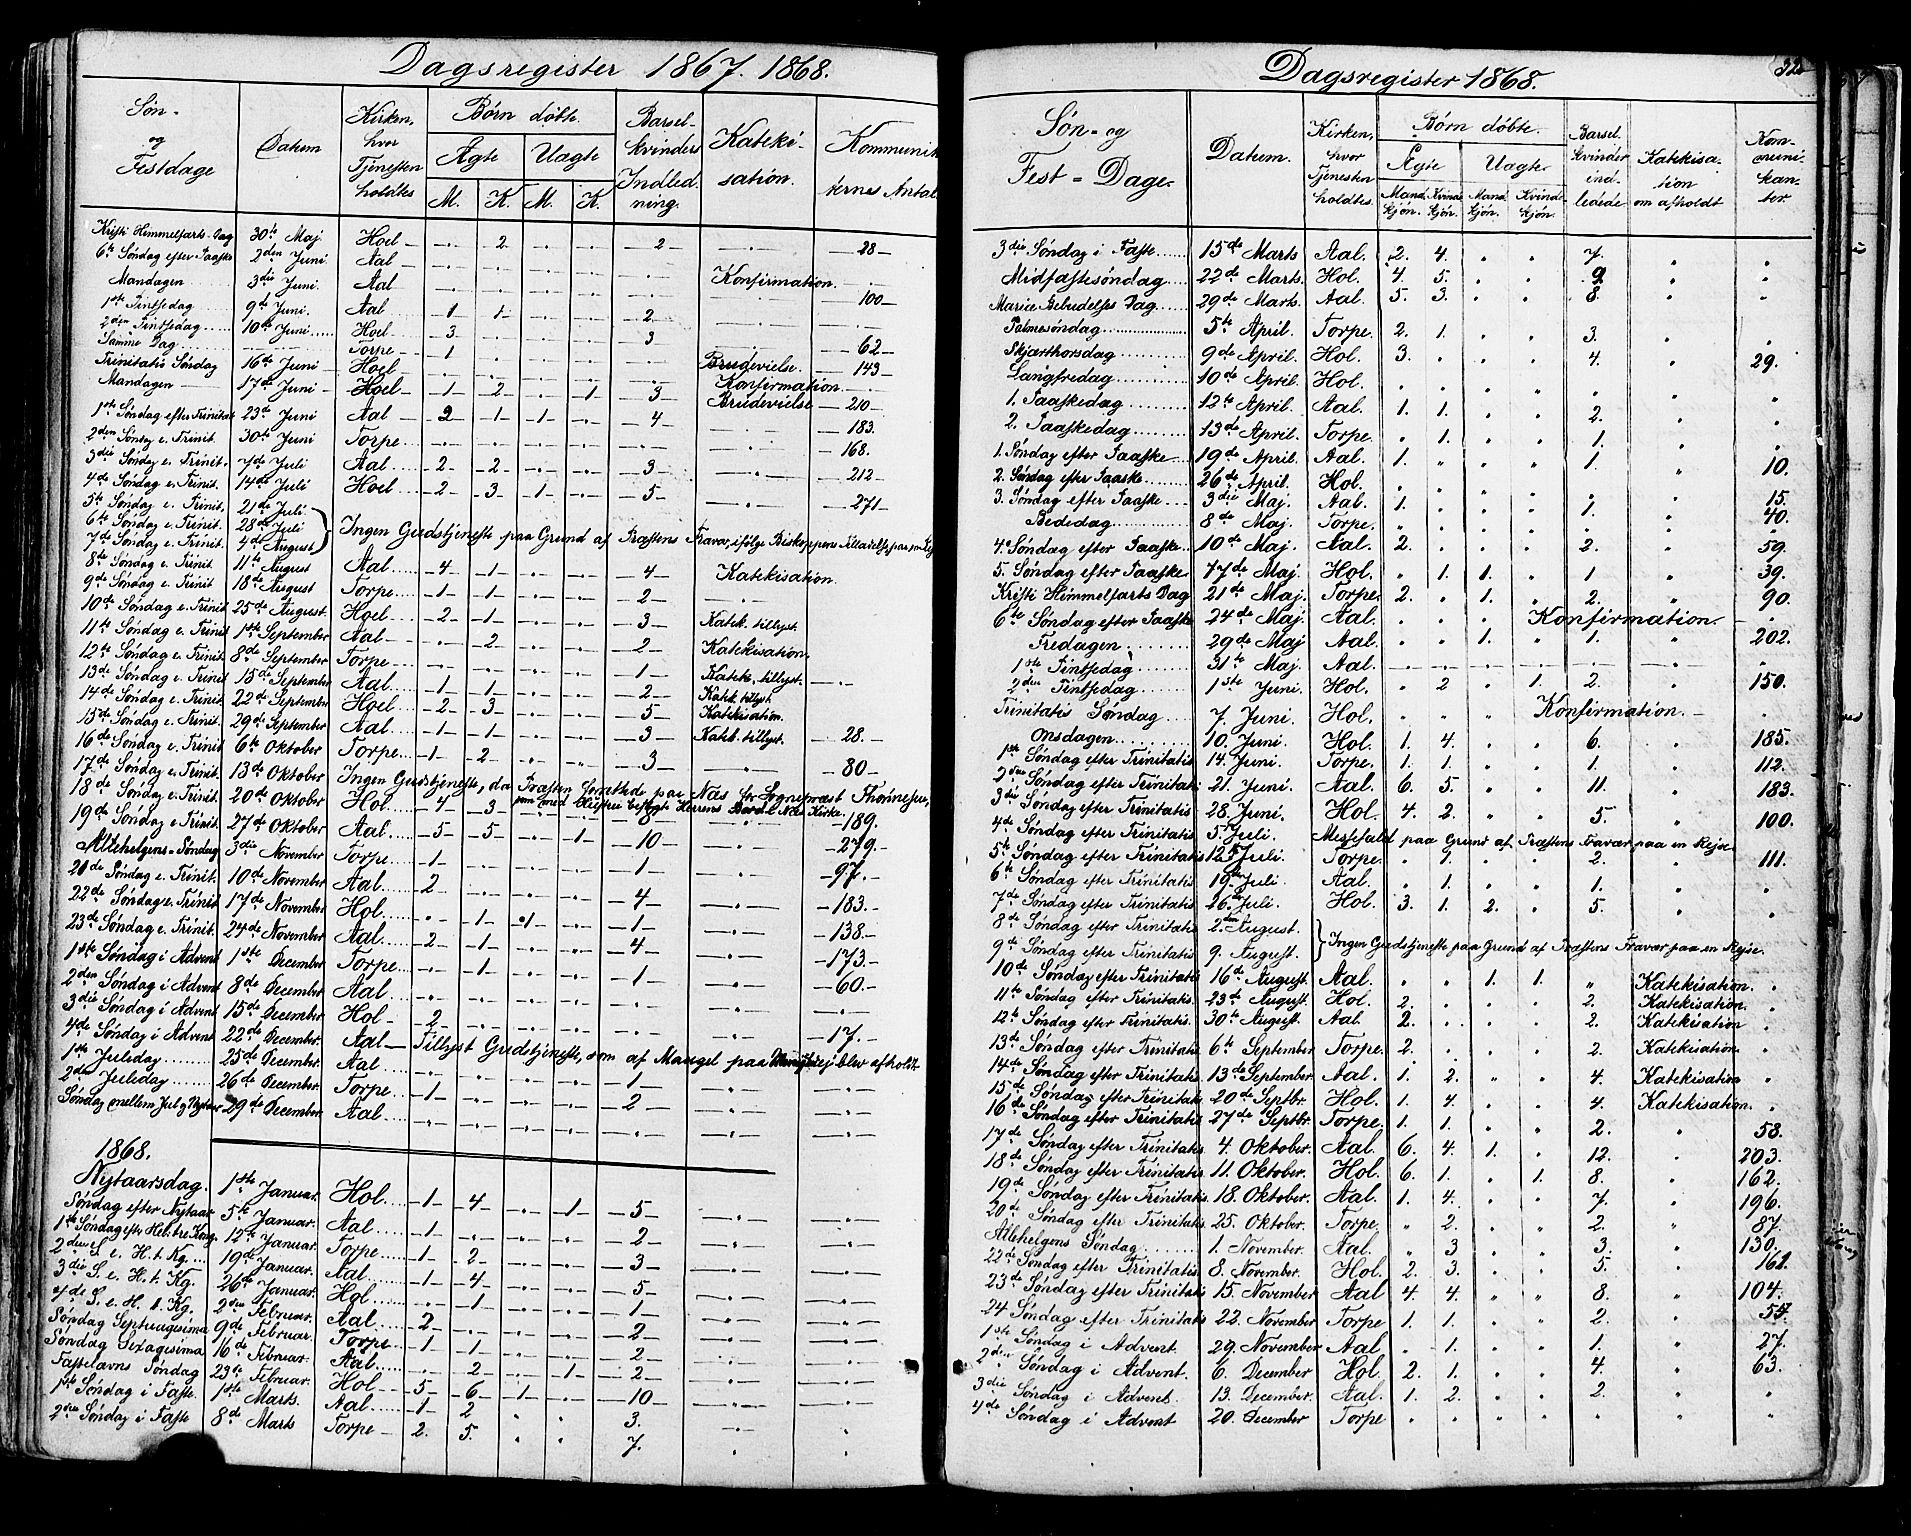 Dagsregister 1867. 1868.
Søn- og Festdage | Datum | Kirken, hvor Tjenesten holdtes | Børn døbte. Ægte M. K. Uægte M. K. | Barselkvinders Indledning. | Katekisation. | Kommunikanternes Antal
Kristi Himmelfarts-Dag 30te Maj Hoel - . - 2 - . - . - 2 - . - 28 -
6te Søndag efter Paaske 2den Juni Aal
Mandagen 3die Juni Aal Konfirmation. - 100 -
1ste Pintsedag 9de Juni Aal - 1 - 1 - . - . - 2 -
2den Pintsedag 10de Juni Hoel - 3 - . - . - . - 3 - - 62 -
Samme Dag Torpe - 1 -
Trinitatis Søndag 16de Juni Hoel Brudevielse. - 143 -
Mandagen 17de Juni Hoel - 1 - 2 - . - 1 - 3 - Konfirmation
Brudevielse - 210 -
1ste Søndag efter Trinitat. 23de Juni Aal 2 - 1 - 1 - . - 4 - - 183.
2den Søndag e. Trinit. 30te Juni Torpe - 168.
3die Søndag e. Trinit. 7de Juli Aal - 2 - 2 - . - . - 3 - - 212
4de Søndag e. Trinit. 14de Juli Hoel - 2 - 3 - 1 - . - 5 - - 271 -
5te Søndag e. Trinit. 21de Juli
6te Søndag e. Trinit. 28de Juli } Ingen Gudstjeneste paa Grund af Præstens Fravær, ifølge Biskoppens Tilladelse, paa en Rejse
7de Søndag e. Trinit. 4de August
8de Søndag e. Trinit. 11te August Aal - 4 - 1 - . - . - 4 - Katekisation
9de Søndag e. Trinit 18de August Torpe - 1 - 1 - . - . - 2 -
10de Søndag e. Trinit 25de August. Hoel - 2 - 1 - . - . - 3 - Katek. tillyst.
11te Søndag e. Trinit 1ste September Aal - . - 2 - . - . - 2 - Katekisation.
12te Søndag e. Trinit. 8de September Torpe - . - . - . - . - 1 - Katek. tillyst.
13de Søndag e. Trinit. 15de September Aal - 1 - 1 - . - . - 2 - Katek. tillyst.
14de Søndag e. Trinit. 22de September Hoel - 2 - 3 - . - . - 5 - Katekisation.
15de Søndag e. Trinit. 29de September Aal - 1 - 1 - . - . - 3 - Katek. tillyst. - 28. -
16de Søndag e. Trinit 6te Oktober Torpe - 1 - 2 - . - . - 3 - - 80 -
17de Søndag e. Trinit. 13de Oktober Ingen Gudstjeneste, da Præsten forrettede paa Næs for Sognepræst Thonnesen,
18de Søndag e. Trinit. 20de Oktober Hol. - 4 - 3 - 8 - - 189.
19de Søndag e. Trinit. 27de Oktober Aal - 5 - 5 - . - 1 - 10 - - 279. -
Allehelgens-Søndag 3die November Torpe - 1 - . - . - . - 1 - - 97. -
21de Søndag e. Trinit. 10de November Aal - 2 - . - . - . - 4 - - 183. -
22de Søndag e. Trinit 17de November Hol. - . - 1 - 1 - . - . - - 138. -
23de Søndag e. Trinit. 24de November Aal. - 2 - 1 - . - . - 4 - - 173. -
1ste Søndag i Advent 1ste December Torpe - . - 1 - . - . - 1 - - 60. -
2den Søndag i Advent 8de December Aal
3die Søndag i Advent 15de December Hol - 2 - - 17. -
4de Søndag i Advent 22de December Aal - Tillyst Gudstjeneste, som af Mangel paa ej blev afholdt
1ste Juledag 25de December. Aal
2de Juledag 26de December. Torpe - 1 - . - . - . - 1 -
Søndag mellem Jul og Nytaar 29de December. Aal - . - . - . - . - 2 -
1868.
Nytaarsdag. 1ste Januar. Hol. - 1 - 4 - . - 1 - 5 -
Søndag efter Nytaar 5te Januar. Aal - 1 - . - . - . - 2 -
1ste Søndag efter Hel. tre Kong. 12te Januar. Torpe - 1 - 2 - . - . - 3 -
2den S. e. H. t. Kg. 19de Januar. Aal - 1 - 4 - . - . - 5 -
3die S. e. H. t. Kg. 26de Januar. Hol - . - 1 - . - . - 1 -
4de S. e. H. t. Kg. 2den Februar. Aal - 2 - . - . - . - 2 -
Søndag Septuagesima 9de Februar. Torpe - 1 - 1 - . - . - 2 -
Søndag Sexagesima 16de Februar. Aal - . - 2 - . - 1 - 2 -
Fastelavns Søndag 23de Februar. Hol - 5 - 6 - 1 - . - 10 -
1ste Søndag i Faste 1ste Marts. Aal - 1 - 2 3.
2den Søndag i Faste 8de Marts Torpe - 2. 5. 7.
Dagsregister 1868. 32
Søn- og Fest-Dage. | Datum. | Kirken, hvor Tjenesten holdtes. | Børn døbte. Ægte Mandkjøn. Kvindekjøn. Uægte. Mandkjøn. Kvindekjøn. | Barselkvinder indledede | Katekisation om afholdt | Kommunikanter
3die Søndag i Faste 15de Marts Aal 2. 4. . . 7. . .
Midfastesøndag 22de Marts. Hol. 4. 5. . . 9 . .
Mariæ Bebudelses Dag 29de Marts. Aal. 5. 3. . . 8. . .
Palmesøndag 5te April. Torpe 2. 1. . . 3. . .
Skjærthorsdag 9de April. Hol. 3. . . . 4. . 29.
Langfredag 10de April. Hol.
1. Paaskedag 12te April. Aal. 1. 1. . . 2. . .
2. Paaskedag 13de April. Torpe. . 1. . . 1. . .
1. Søndag efter Paaske 19de April. Aal. 1. . . . 1. . 10.
2. Søndag efter Paaske 26de April. Hol. . . . . . . 15.
3. Søndag efter Paaske 3die Maj. Aal. 1. . . . 1. . 40.
Bededag 8de Maj. Torpe.
4. Søndag efter Paaske 10de Maj. Aal. 2. . . . 2. . 59.
5. Søndag efter Paaske 17de Maj. Hol. . 1. 1. . 1 . 39.
Kristi Himmelfarts Dag 21de Maj. Torpe 2. . 1. . 2. . 90.
6te Søndag efter Paaske 24de Maj. Aal. Konfirmation.
Fredagen 29de Maj Aal. . . 1. . 1. . 202.
1ste Pintsedag 31te Maj. Aal.
2den Pintsedag 1ste Juni. Hol. . 2 . 1. 2. . 150.
Trinitatis Søndag 7. Juni. Hol. Konfirmation.
Onsdagen 10. Juni. Hol. 1. 4. . . 6. . 185.
1ste Søndag efter Trinitatis 14. Juni. Torpe. 1. 1. . . 1. . 112.
2den Søndag efter Trinitatis 21. Juni. Aal. 6. 5. . . 11. . 183.
3die Søndag efter Trinitatis 28. Juni. Hol. 4. 2. . . 5. . 100.
4de Søndag efter Trinitatis 5. Juli. Messefald paa Grund af Præstens Fravær paa en Rejse
5te Søndag efter Trinitatis 12. Juli. Torpe. . 1. . . 2. . 111.
6te Søndag efter Trinitatis 19. Juli. Aal. . 1. . . 1. . .
7de Søndag efter Trinitatis 26. Juli. Hol. 3. 1. 2. . 5. . .
8de Søndag efter Trinitatis 2den August. } Ingen Gudstjeneste paa Grund af Præstens Fravær paa en Rejse.
9de Søndag efter Trinitatis 9. August.
10de Søndag efter Trinitatis 16de August. Aal. . . 1. 1. " Katekisation. .
11te Søndag efter Trinitatis. 23de August. Hol. 2. . . . 2. Katekisation. .
12te Søndag efter Trinitatis. 30te August. Aal. 2. . . . 2. Katekisation .
13de Søndag efter Trinitatis 6te September Torpe. 2. . . . 2. Katekisation .
14de Søndag efter Trinitatis 13de September Aal. 1. 2. . . 4. Katekisation .
15de Søndag efter Trinitatis 20de Septbr. Hol. 1. 4. . . 4. Katekisation. .
16de Søndag efter Trinitatis 27de Septbr. Torpe. 1. 1. . . 2. . 58.
17de Søndag efter Trinitatis 4. Oktober. Aal. 6. 4. 1. . 12. . 203.
18de Søndag efter Trinitatis 11. Oktober. Hol. 6. 1. . 1. 8. . 162.
19de Søndag efter Trinitatis 18. Oktober. Aal. 1. 4. . . 7. . 196.
20de Søndag efter Trinitatis 25. Oktober. Torpe. " 2. . . 2. . 87.
Allehelgens Søndag 1. November. Aal. " 3 . . 3. . 130.
22de Søndag efter Trinitatis 8. November. Hol. 2. 3. . . 5. . 161.
23de Søndag efter Trinitatis 15. November Aal 4. 4. . . 8. . 104.
24 Søndag efter Trinitatis 22. November Torpe 1. 1. . . 2. . 54.
1ste Søndag i Advent 29. November Aal . 1. . . 1. . 27.
2den Søndag i Advent. 6. December Hol 2. 1. . . 4. . 63.
3die Søndag i Advent. 13. December Aal. 1. 2. . . 2. . .
4de Søndag i Advent 20. December Torpe